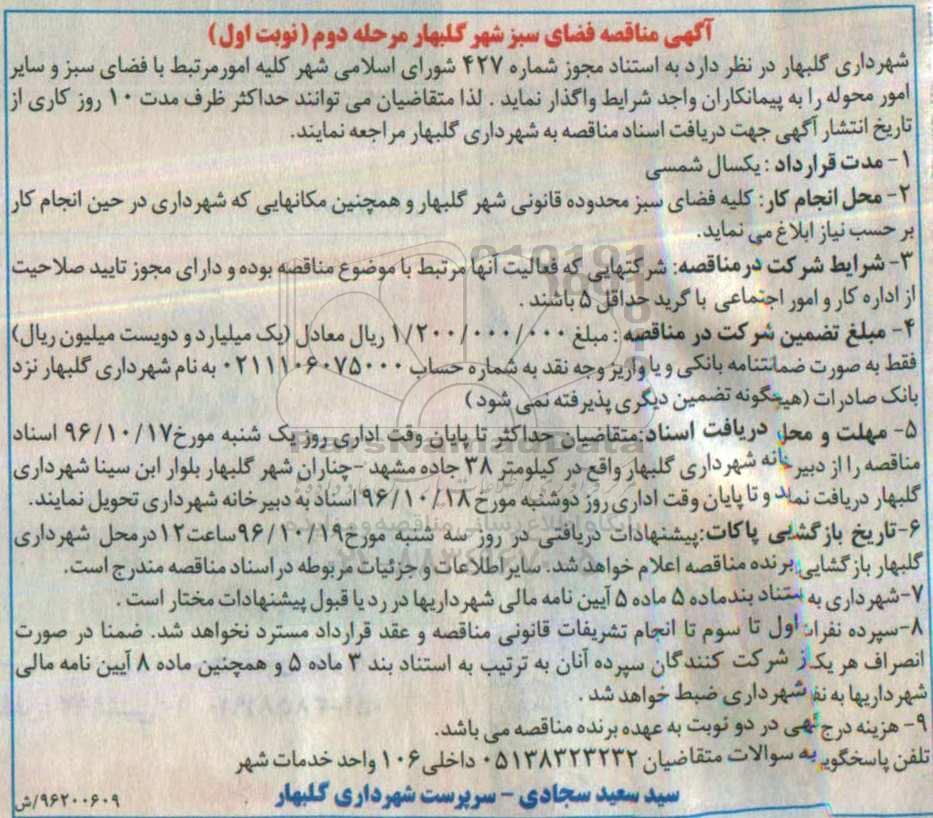 آگهی مناقصه فضای سبز شهر گلبهار مرحله دوم (نوبت اول)
شهرداری گلبهار در نظر دارد به استناد مجوز شماره ۴۲۷ شورای اسلامی شهر کلیه امورمرتبط با فضای سبز و سایر
امور محوله را به پیمانکاران واجد شرایط واگذار نماید . لذا متقاضیان می توانند حداکثر ظرف مدت ۱۰ روز کاری از
تاریخ انتشار آگهی جهت دریافت اسناد مناقصه به شهرداری گلبهار مراجعه نمایند.
۱- مدت قرارداد : یکسال شمسی
۲- محل انجام کار : کلیه فضای سبز محدوده قانونی شهر گلبهار و همچنین مکانهایی که شهرداری در حین انجام کار
بر حسب نیاز ابلاغ می نماید.
۳- شرایط شرکت درمناقصه: شرکتهایی که فعالیت آنها مرتبط با موضوع مناقصه بوده و دارای مجوز تایید صلاحیت
از اداره کار و امور اجتماعی با گرید حداقل ۵ باشند .
۴- مبلغ تضمین شرکت در مناقصه : مبلغ ۱/۲۰۰/۰۰۰/۰۰۰ ریال معادل (یک میلیارد و دویست میلیون ریال)
فقط به صورت ضمانتنامه بانکی و یا واریز وجه نقد به شماره حساب ۰۲۱۱۱۰۶۰۷۵۰۰۰ به نام شهرداری گلبهار نزد
بانک صادرات (هیچگونه تضمین دیگری پذیرفته نمی شود )
۵- مهلت و محل دریافت اسناد:متقاضیان حداکثر تا پایان وقت اداری روز یک شنبه مورخ۹۶/۱۰/۱۷ اسناد
مناقصه را از دبیرخانه شهرداری گلبهار واقع در کیلومتر ۳۸ جاده مشهد -چناران شهر گلبهار بلوار ابن سینا شهرداری
گلبهار دریافت نماید و تا پایان وقت اداری روز دوشنبه مورخ ۹۶/۱۰/۱۸ اسناد به دبیرخانه شهرداری تحویل نمایند.
۶-تاریخ بازگشایی پاکات:پیشنهادات دریافتی در روز سه شنبه مورخ۹۶/۱۰/۱۹ساعت۱۲درمحل شهرداری
گلبهار بازگشایی برنده مناقصه اعلام خواهد شد. سایر اطلاعات و جزئیات مربوطه در اسناد مناقصه مندرج است.
۷-شهرداری به استناد بندماده ۵ ماده ۵ آیین نامه مالی شهرداریها در رد یا قبول پیشنهادات مختار است .
۸-سپرده نفرات اول تا سوم تا انجام تشریفات قانونی مناقصه و عقد قرارداد مسترد نخواهد شد. ضمنا در صورت
انصراف هر یک از شرکت کنندگان سپرده آنان به ترتیب به استناد بند ۳ ماده ۵ و همچنین ماده ۸ آیین نامه مالی
شهرداریها به نفع شهرداری ضبط خواهد شد .
۹- هزینه درج آگهی در دو نوبت به عهده برنده مناقصه می باشد.
تلفن پاسخگویی به سوالات متقاضیان ۰۵۱۳۸۳۲۳۲۳۲ داخلی ۱۰۶ واحد خدمات شهر
سید سعید سجادی - سرپرست شهرداری گلبهار
۹۶۲۰۰۶۰۹/ش
ParsNamadData